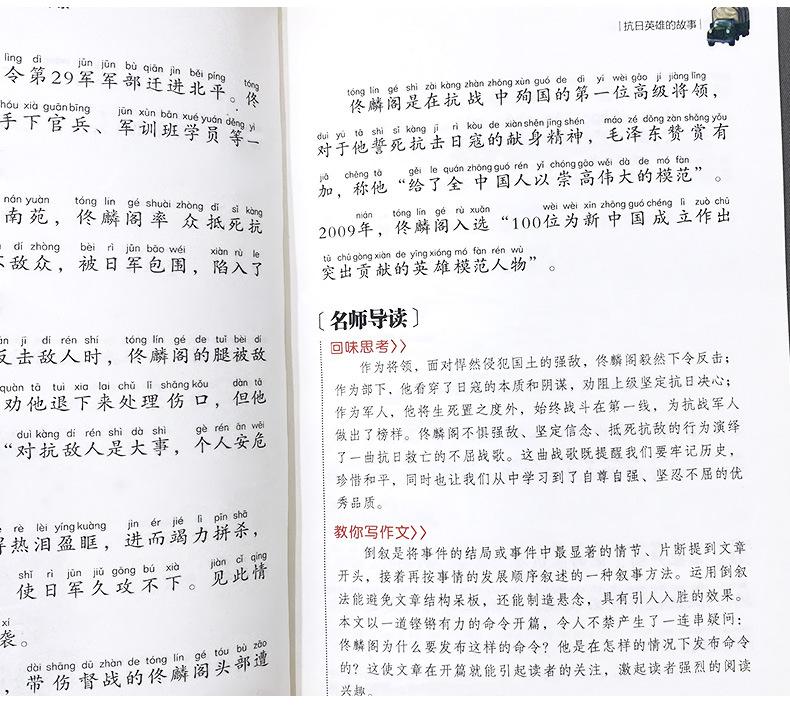 lìng dì jūn jūn bù qiān jìn běi píng tóng
令第29军军部迁进北平。佟
shǒu xià guān bīng jūn xùn bān xué yuán děng yì
手下官兵、军训班学员等一
nán yuàn tóng lín gé shuài zhòng dǐ sǐ kàng
南苑，佟麟阁率众抵死抗
dí zhòng bèi rì jūn bāo wéi xiàn rù le
敌众，被日军包围，陷入了
jī dí rén shí tóng lín gé de tuǐ bèi dí
反击敌人时，佟麟阁的腿被敌
quàn tā tuì xia lai chǔ lǐ shāng kǒu dàn tā
劝他退下来处理伤口，但他
duì kàng dí rén shì dà shì gè rén ān wēi
“对抗敌人是大事，个人安危
rè lèi yíng kuàng jìn ér jié lì pīn shā
热泪盈眶，进而竭力拼杀，
shǐ rì jūn jiǔ gōng bú xià jiàn cǐ qíng
使日军久攻不下。见此情
xí
袭。
dài shāng dū zhàn de tóng lín gé tóu bù zāo
带伤督战的佟麟阁头部遭
抗日英雄的故事
tóng lín gé shì zài kàng zhàn zhōng xùn guó de dì yī wèi gāo jí jiàng lǐng
佟麟阁是在抗战中殉国的第一位高级将领，
duì yú tā shì sǐ kàng jī rì kòu de xiàn shēn jīng shén máo zé dōng zàn shǎng yǒu
对于他誓死抗击日寇的献身精神，毛泽东赞赏有
jiā chēng tā gěi le quán zhōng guó rén yǐ chóng gāo wěi dà de mó fàn
加，称他“给了全中国人以崇高伟大的模范”。
nián tóng lín gé rù xuǎn wèi wèi xīn zhōng guó chéng lì zuò chū
2009年，佟麟阁入选“100位为新中国成立作出
tū chū gòng xiàn de yīng xióng mó fàn rén wù
突出贡献的英雄模范人物”。
〔名师导读〕
回味思考〉〉
作为将领，面对悍然侵犯国土的强敌，佟麟阁毅然下令反击；
作为部下，他看穿了日寇的本质和阴谋，劝阻上级坚定抗日决心；
作为军人，他将生死置之度外，始终战斗在第一线，为抗战军人
做出了榜样。佟麟阁不惧强敌、坚定信念、抵死抗敌的行为演绎
了一曲抗日救亡的不屈战歌。这曲战歌既提醒我们要牢记历史，
珍惜和平，同时也让我们从中学习到了自尊自强、坚忍不屈的优
秀品质。
教你写作文〉〉
倒叙是将事件的结局或事件中最显著的情节、片断提到文章
开头，接着再按事情的发展顺序叙述的一种叙事方法。运用倒叙
法能避免文章结构呆板，还能制造悬念，具有引人入胜的效果。
本文以一道铿锵有力的命令开篇，令人不禁产生了一连串疑问：
佟麟阁为什么要发布这样的命令？他是在怎样的情况下发布命令
的？这使文章在开篇就能引起读者的关注，激起读者强烈的阅读
兴趣。